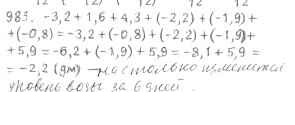 983. -3,2 + 1,6 + 4,3 + (-2,2) + (-1,9) +
+ (-0,8) = -3,2 + (-0,8) + (-2,2) + (-1,9) +
+ 5,9 = -6,2 + (-1,9) + 5,9 = -8,1 + 5,9 =
= -2,2 (дм) – настолько изменится
уровень воды за 6 дней.